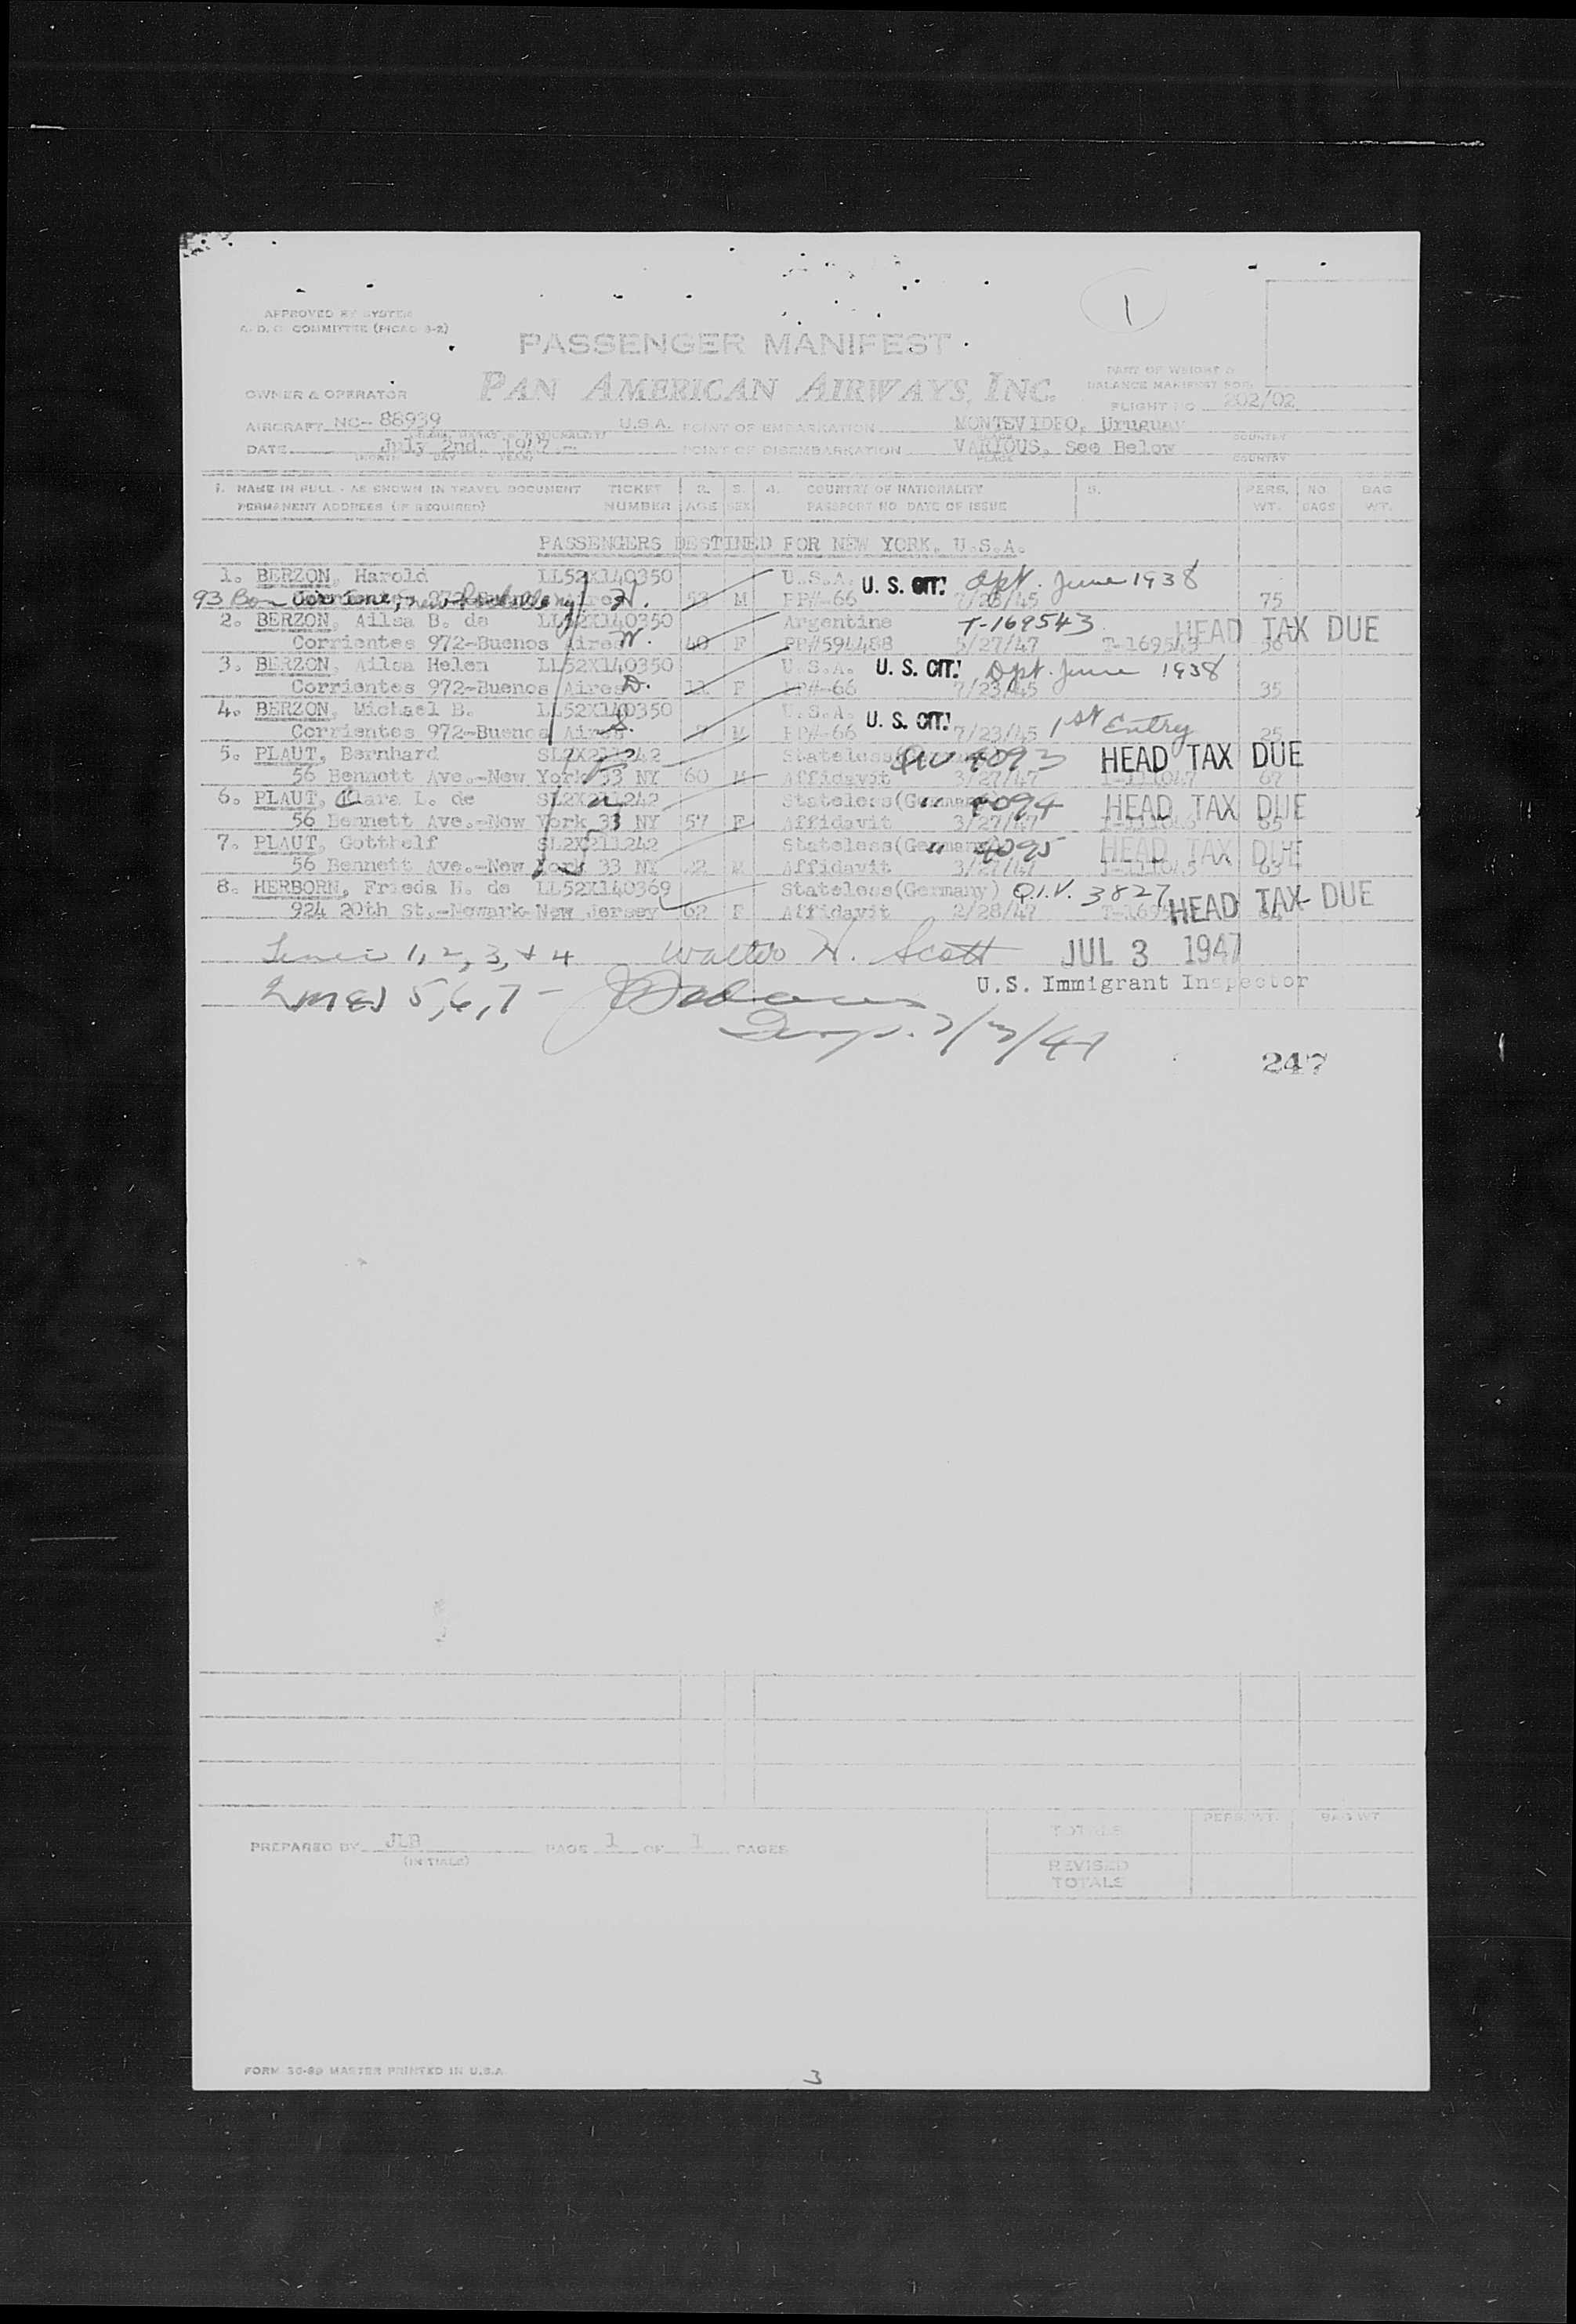 1
APPROVED BY SYSTEM
A. D. C. COMMITTEE (PICAO 3-2)
PASSENGER MANIFEST
PAN AMERICAN AIRWAYS, INC.
PART OF WEIGHT &
BALANCE MANIFEST FOR
OWNER & OPERATOR
FLIGHT NO 202/02
AIRCRAFT NC- 88939 U.S.A. POINT OF EMBARKATION MONTEVIDEO, Uruguay
PLACE COUNTRY
DATE July 2nd. 1947 POINT OF DISEMBARKATION VARIOUS, See Below
(MONTH DAY YEAR) PLACE COUNTRY
1. NAME IN FULL - AS SHOWN IN TRAVEL DOCUMENT TICKET 2. 3. 4. COUNTRY OF NATIONALITY 5. PERS. NO BAG
PERMANENT ADDRESS (IF REQUIRED) NUMBER AGE SEX PASSPORT NO DATE OF ISSUE WT. BAGS WT.
PASSENGERS DESTINED FOR NEW YORK, U.S.A.
1. BERZON, Harold LL52X140350 U.S.A. U. S. CIT. dpt. June 1938
93 972 H. M PP#-66 75
2. BERZON, Ailsa B. de LL52X140350 Argentine T-169543 HEAD TAX DUE
Corrientes 972-Buenos Aires W. 40 F PP#594488 5/27/47 T-169543
3. BERZON, Ailsa Helen LL52X140350 U.S.A. U. S. CIT. Dpt. June 1938
Corrientes 972-Buenos Aires D. 11 F PP#-66 7/23/45 35
4. BERZON, Michael B. LL52X140350 U.S.A. U. S. CIT. 1st Entry
Corrientes 972-Buenos Aires S. M PP#-66 7/23/45 25
5. PLAUT, Bernhard SL2X211242 Stateless 4093 HEAD TAX DUE
56 Bennett Ave.-New York 33 NY 60 M Affidavit 3/27/47 67
6. PLAUT, Clara L. de SL2X211242 Stateless(Germany) " 4094 HEAD TAX DUE
56 Bennett Ave.-New York 33 NY 57 F Affidavit 3/27/47
7. PLAUT, Gotthelf SL2X211242 Stateless(Germany) " 4095 HEAD TAX DUE
56 Bennett Ave.-New York 33 NY 22 M Affidavit 3/27/47 63
8. HERBORN, Frieda H. de LL52X140369 Stateless(Germany) Q.I.V. 3827 HEAD TAX DUE
924 20th St.-Newark-New Jersey 62 F Affidavit 2/28/47
Lines 1, 2, 3, + 4 Walter H. Scott JUL 3 1947
U.S. Immigrant Inspector
Lines 5, 6, 7 -
Insp. 7/3/47
247
PREPARED BY JLB PAGE 1 OF 1 PAGES
(INITIALS)
PERS. WT. BAG WT
TOTALS
REVISED
TOTALS
FORM 30-89 MASTER PRINTED IN U.S.A.
3